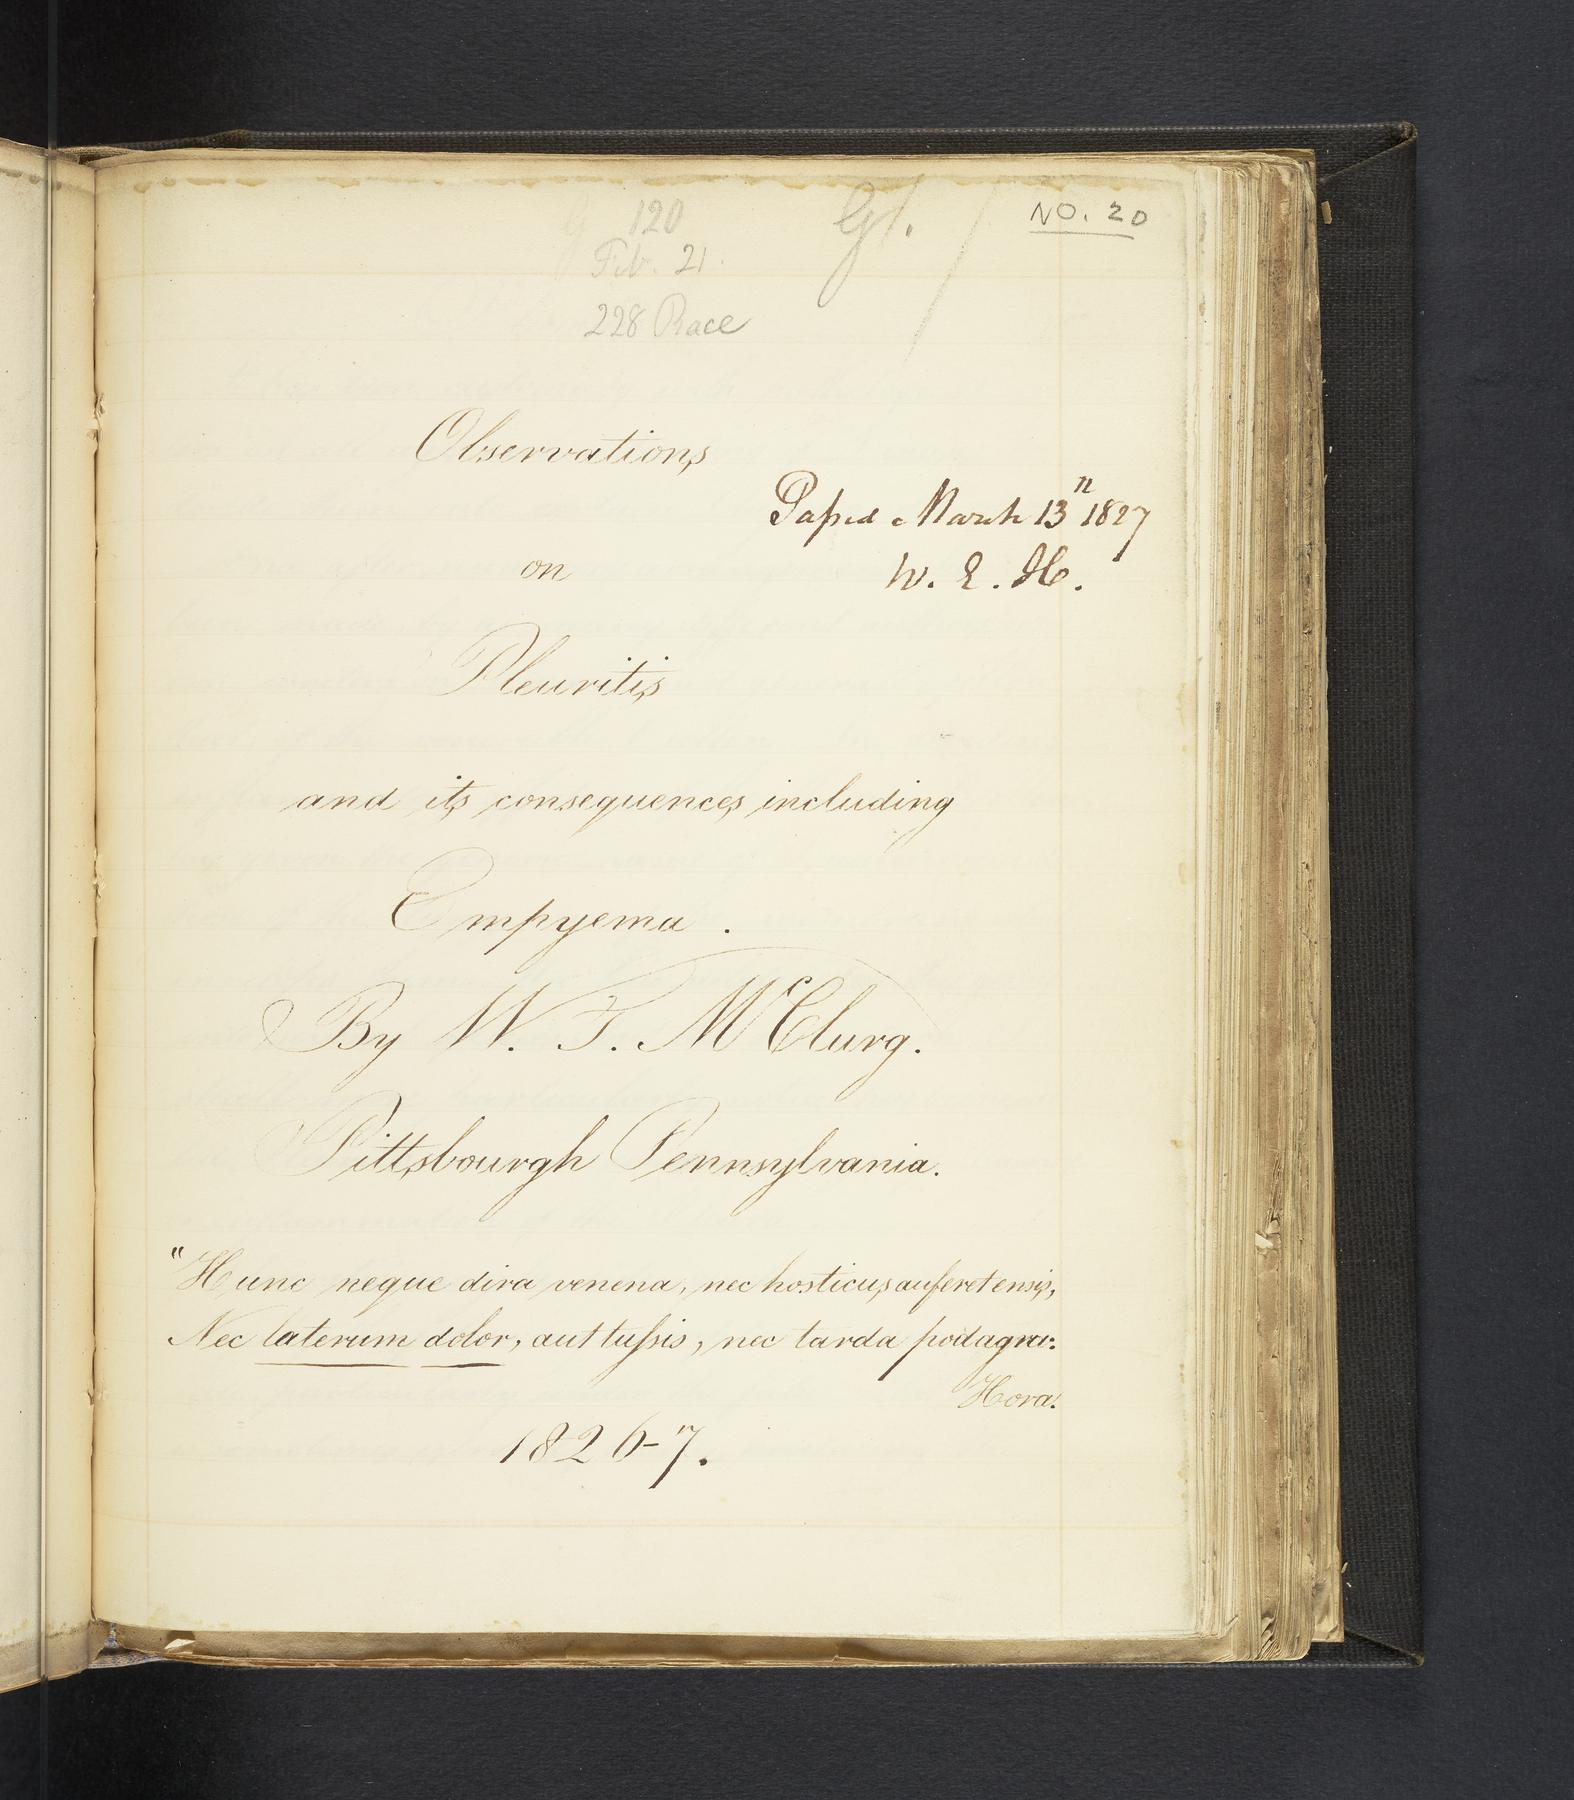 120
Gl.
NO. 20
Feb. 21.
228 Race
Observations
Paſsed March 13th 1827
on
W. E. H.
Pleuritis
and its consequences including
Empyema.
By W. F. McClurg.
Pittsbourgh Pennsylvania.
"Hunc neque dira venena, nec hosticus auferet ensis,
Nec laterum dolor, aut tuſsis, nec tarda podagra:
Hora.
1826-7.